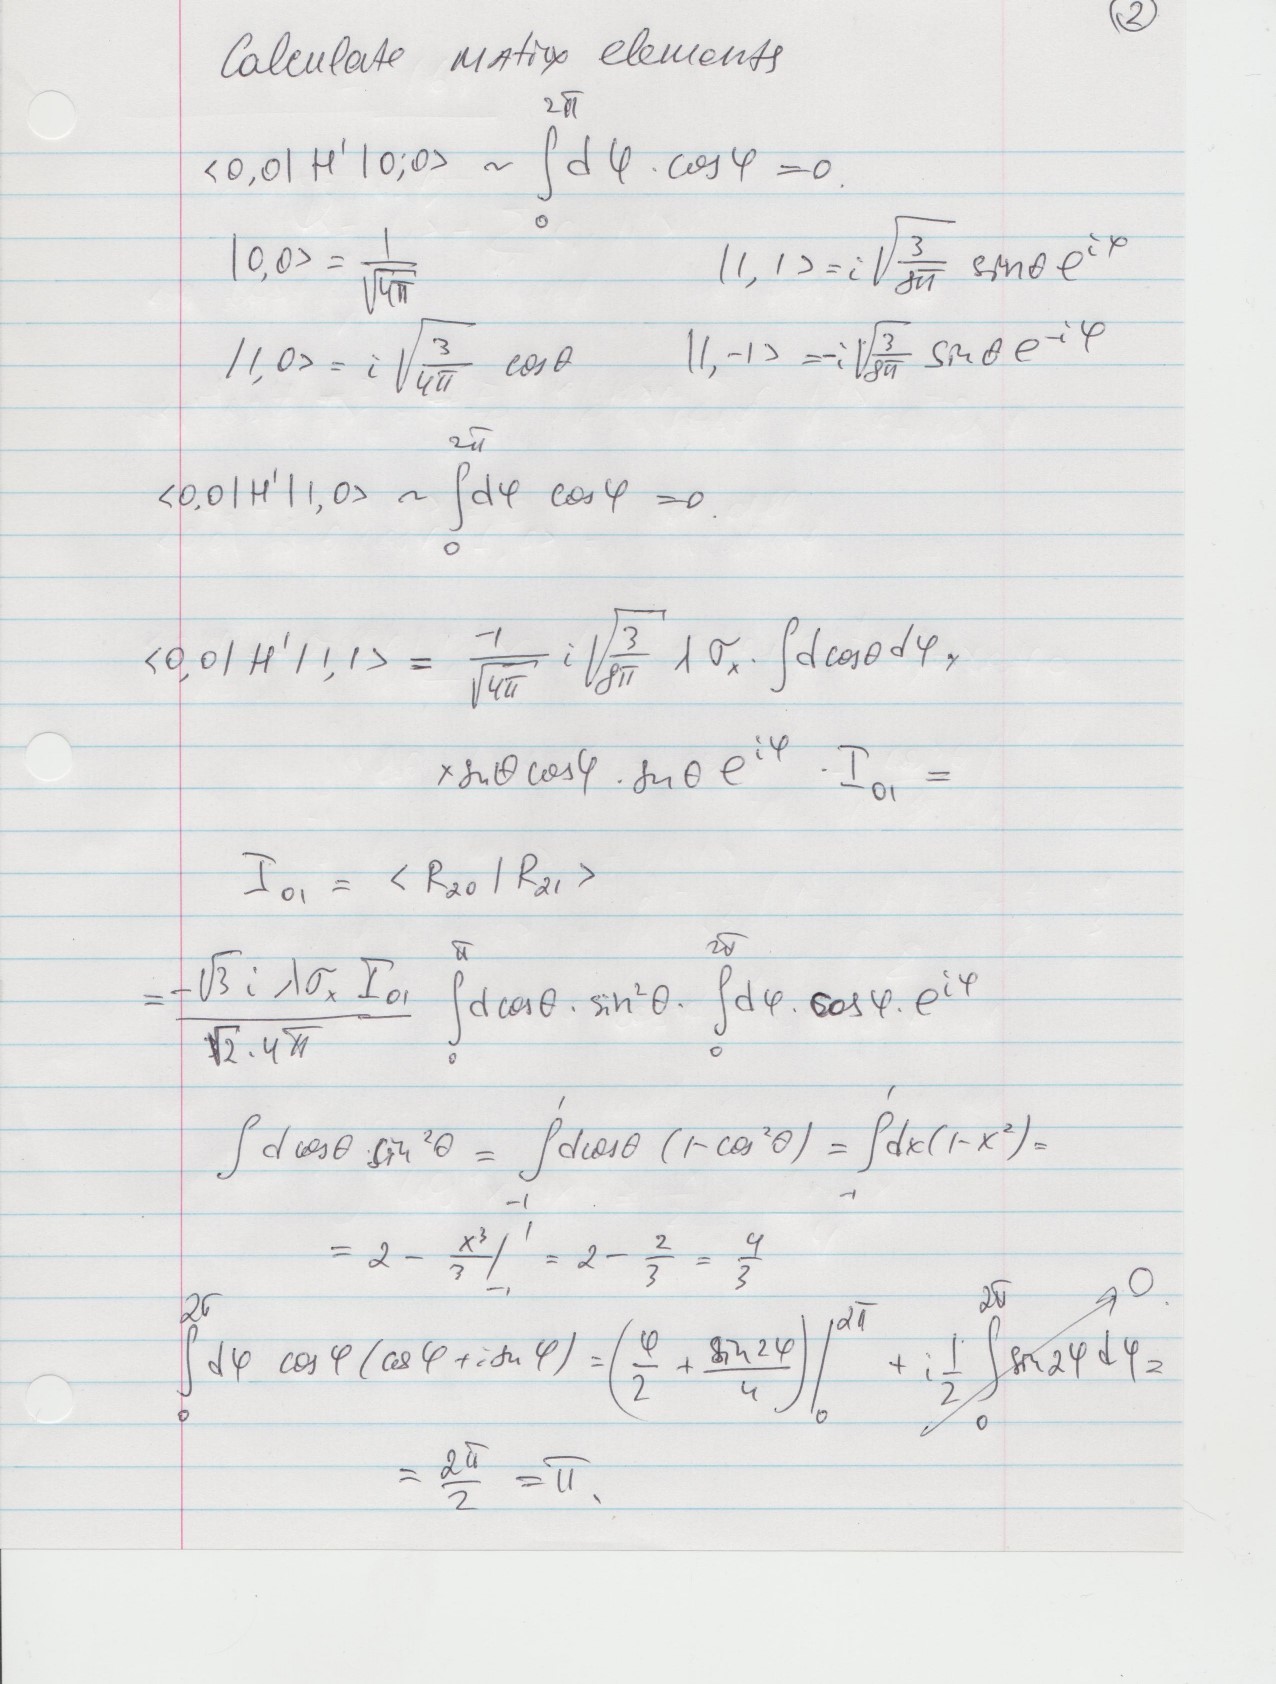 2
Calculate matrix elements
<0,0| H' |0;0> ~ ∫₀^{2π} dφ · cosφ = 0.
|0,0> = 1/√4π    |1,1> = i √(3/8π) sinθ e^{iφ}
|1,0> = i √(3/4π) cosθ    |1,-1> = -i √(3/8π) sinθ e^{-iφ}
<0,0| H' |1,0> ~ ∫₀^{2π} dφ cosφ = 0.
<0,0| H' |1,1> = -1/√4π i √(3/8π) λ σₓ · ∫ dcosθ dφ ×
× sinθ cosφ · sinθ e^{iφ} · I₀₁ =
I₀₁ = <R₂₀ | R₂₁>
= -√3 i λ σₓ I₀₁ / √2 · 4π ∫₀^π dcosθ · sin²θ · ∫₀^{2π} dφ · cosφ · e^{iφ}
∫ dcosθ sin²θ = ∫₋₁^1 dcosθ (1-cos²θ) = ∫₋₁^1 dx(1-x²) =
= 2 - x³/3 |₋₁^1 = 2 - 2/3 = 4/3
∫₀^{2π} dφ cosφ (cosφ + i sinφ) = (φ/2 + sin2φ/4) |₀^{2π} + i 1/2 ∫₀^{2π} sin2φ dφ = 0.
= 2π/2 = π.